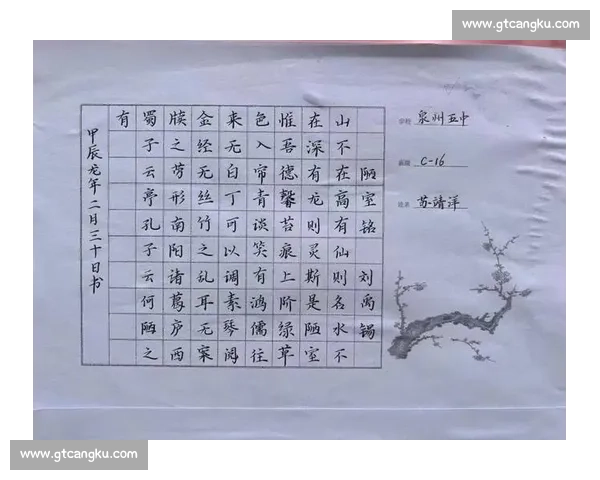 www.gtcangku.com
泉州五中
C-16
苏靖洋
陋室铭 刘禹锡
山不在高有仙则名水不
在深有龙则灵斯是陋室
惟吾德馨苔痕上阶绿草
色入帘青谈笑有鸿儒往
来无白丁可以调素琴阅
金经无丝竹之乱耳无案
牍之劳形南阳诸葛庐西
蜀子云亭孔子云何陋之
有
甲辰龙年二月三十日书
www.gtcangku.com